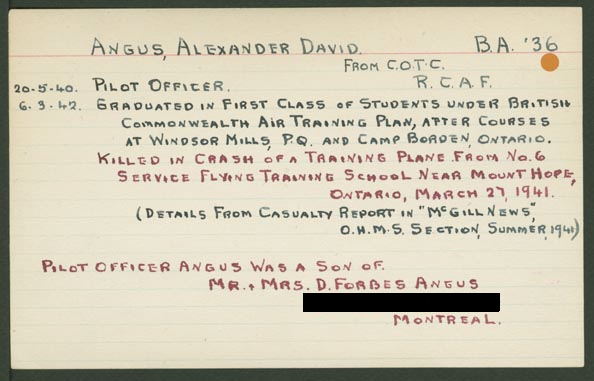 ANGUS, ALEXANDER DAVID. B.A. '36
FROM C.O.T.C.
20-5-40. PILOT OFFICER. R.C.A.F.
6.3.42. GRADUATED IN FIRST CLASS OF STUDENTS UNDER BRITISH
COMMONWEALTH AIR TRAINING PLAN, AFTER COURSES
AT WINDSOR MILLS, P.Q. AND CAMP BORDEN, ONTARIO.
KILLED IN CRASH OF A TRAINING PLANE FROM NO.6
SERVICE FLYING TRAINING SCHOOL NEAR MOUNT HOPE,
ONTARIO, MARCH 27, 1941.
(DETAILS FROM CASUALTY REPORT IN "MCGILL NEWS",
O.H.M.S. SECTION, SUMMER, 1941)
PILOT OFFICER ANGUS WAS A SON OF.
MR. & MRS. D. FORBES ANGUS
MONTREAL.